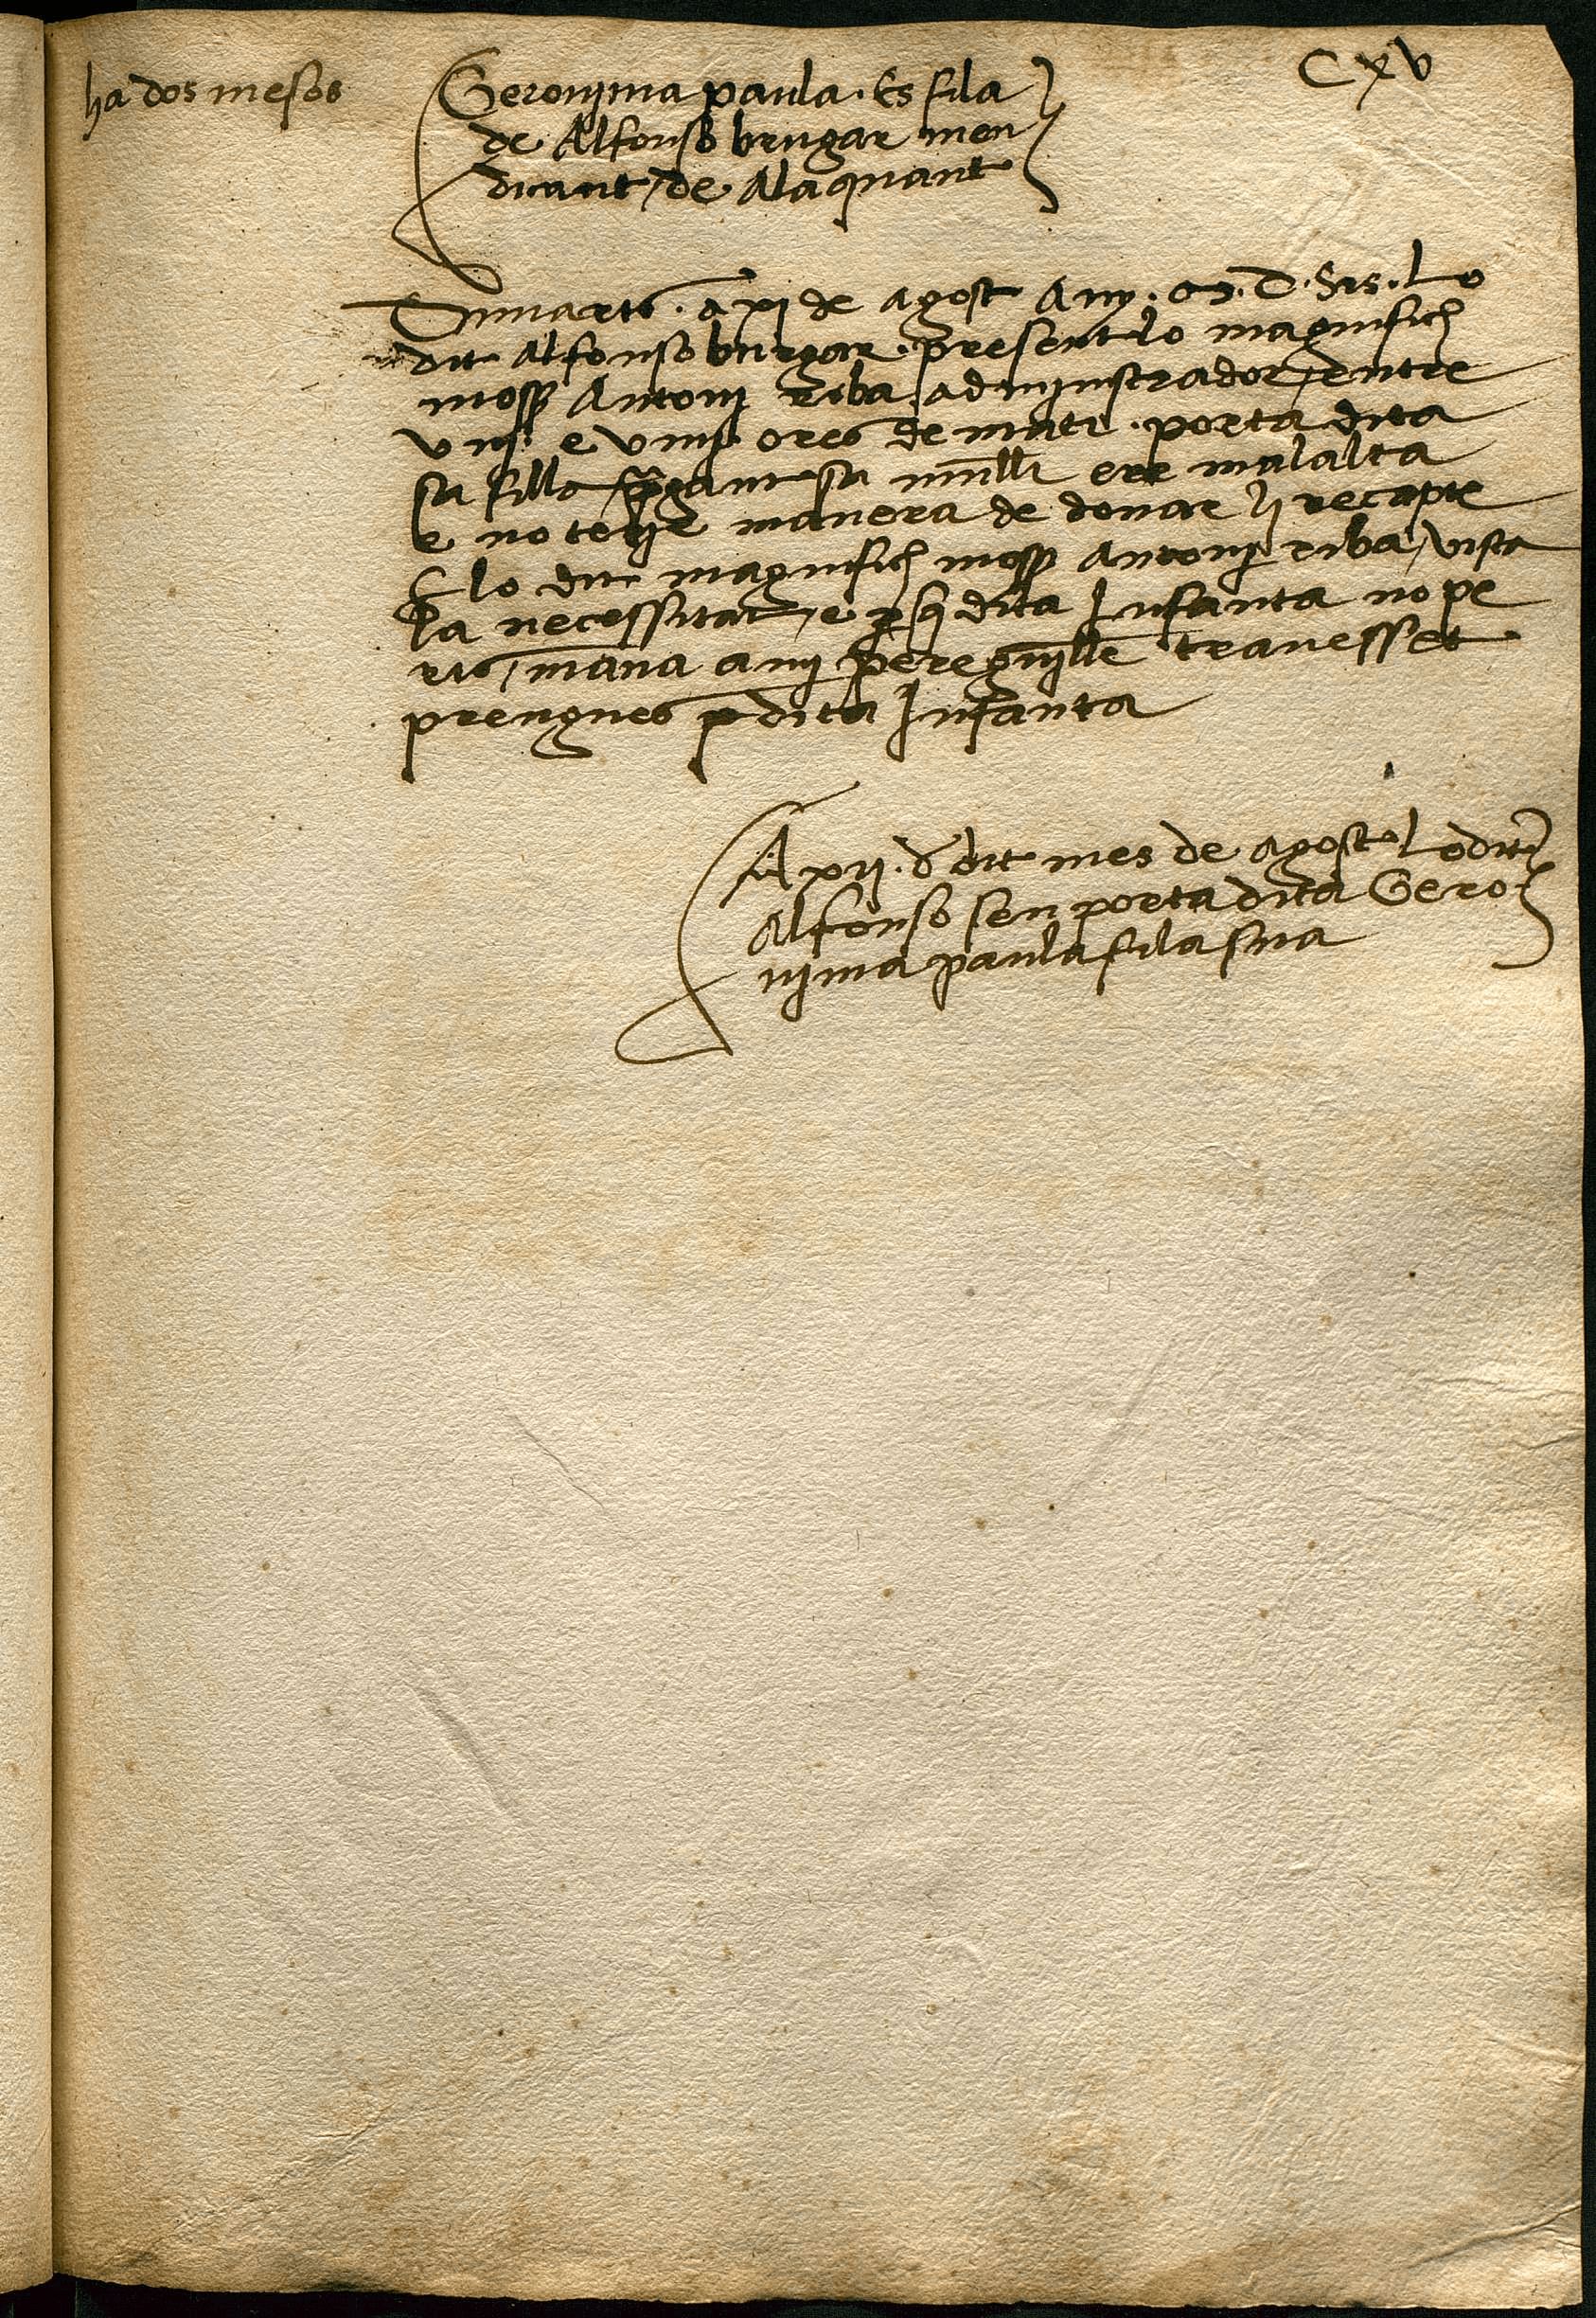 CXV
ha dos mesos
Geronima paula. Es fila
de Alfonso brugar men
dicant / de Alaquant
Dimarts. a xj de agost Any. M. D. Sis. Lo
dit Alfonso burgar. present lo magnifich
mossen Antoni riba administrador / entre
vij e viiij ores de mati. porta dita
sa filla sa mullr ere malalta
e no tenir manera de donar li recapte
E lo dit magnifich mossen Antonj riba / vista
la necessitat / e perque dita Infanta no pe
ris / mana a mj pere travesset
prengues per dita Infanta
A xij. d dit mes de agost Lo dit
Alfonso sen porta dita Gero
nima paula fila sua